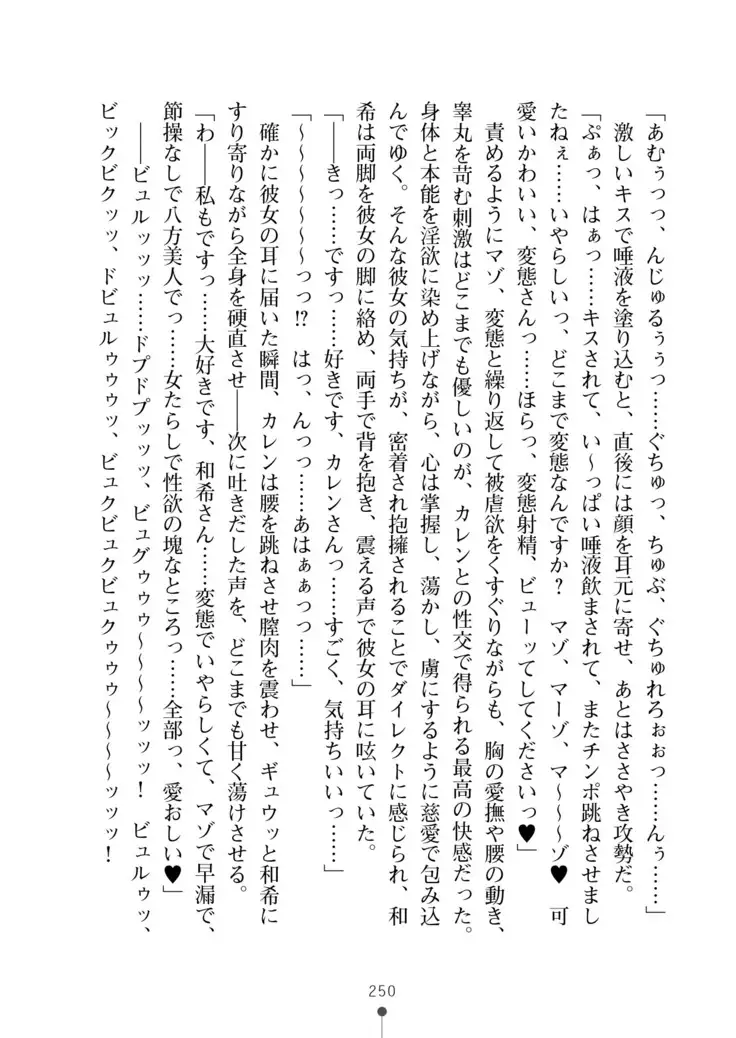 「あむぅっっ、んじゅるぅぅっ……ぐちゅっ、ちゅぶ、ぐちゅれろぉぉっ……んぅ……」
激しいキスで唾液を塗り込むと、直後には顔を耳元に寄せ、あとはささやき攻勢だ。
「ぷぁっっ、はぁっ……キスされて、い～っぱい唾液飲まされて、またチンポ跳ねさせまし
たねぇ……いやらしいっ、どこまで変態なんですか？　マゾ、マーゾ、マ～～～ゾ♥　可
愛いかわいい、変態さんっ……ほらっ、変態射精、ビューッてしてくださいっ♥」
責めるようにマゾ、変態と繰り返して被虐欲をくすぐりながらも、胸の愛撫や腰の動き、
睾丸を苛む刺激はどこまでも優しいのが、カレンとの性交で得られる最高の快感だった。
身体と本能を淫欲に染め上げながら、心は掌握し、蕩かし、虜にするように慈愛で包み込
んでゆく。そんな彼女の気持ちが、密着され抱擁されることでダイレクトに感じられ、和
希は両脚を彼女の脚に絡め、両手で背を抱き、震える声で彼女の耳に呟いていた。
「――きっ……ですっ……好きです、カレンさんっ……すごく、気持ちいいっ……」
「～～～～～～～っっ!?　はっ、んっっ……あはぁぁっっ……」
確かに彼女の耳に届いた瞬間、カレンは腰を跳ねさせ膣肉を震わせ、ギュウッと和希に
すり寄りながら全身を硬直させ――次に吐きだした声を、どこまでも甘く蕩けさせる。
「わ――私もですっ……大好きです、和希さん……変態でいやらしくて、マゾで早漏で、
節操なしで八方美人でっ……女たらしで性欲の塊なところっ……全部っ、愛おしい♥」
――ビュルッッッ……ドプドプッッッ、ビュグゥゥゥ～～～～ッッッ！　ビュルゥッ、
ビックビクッッ、ドビュルゥゥゥッ、ビュクビュクビュクゥゥゥ～～～～ッッッ！
250